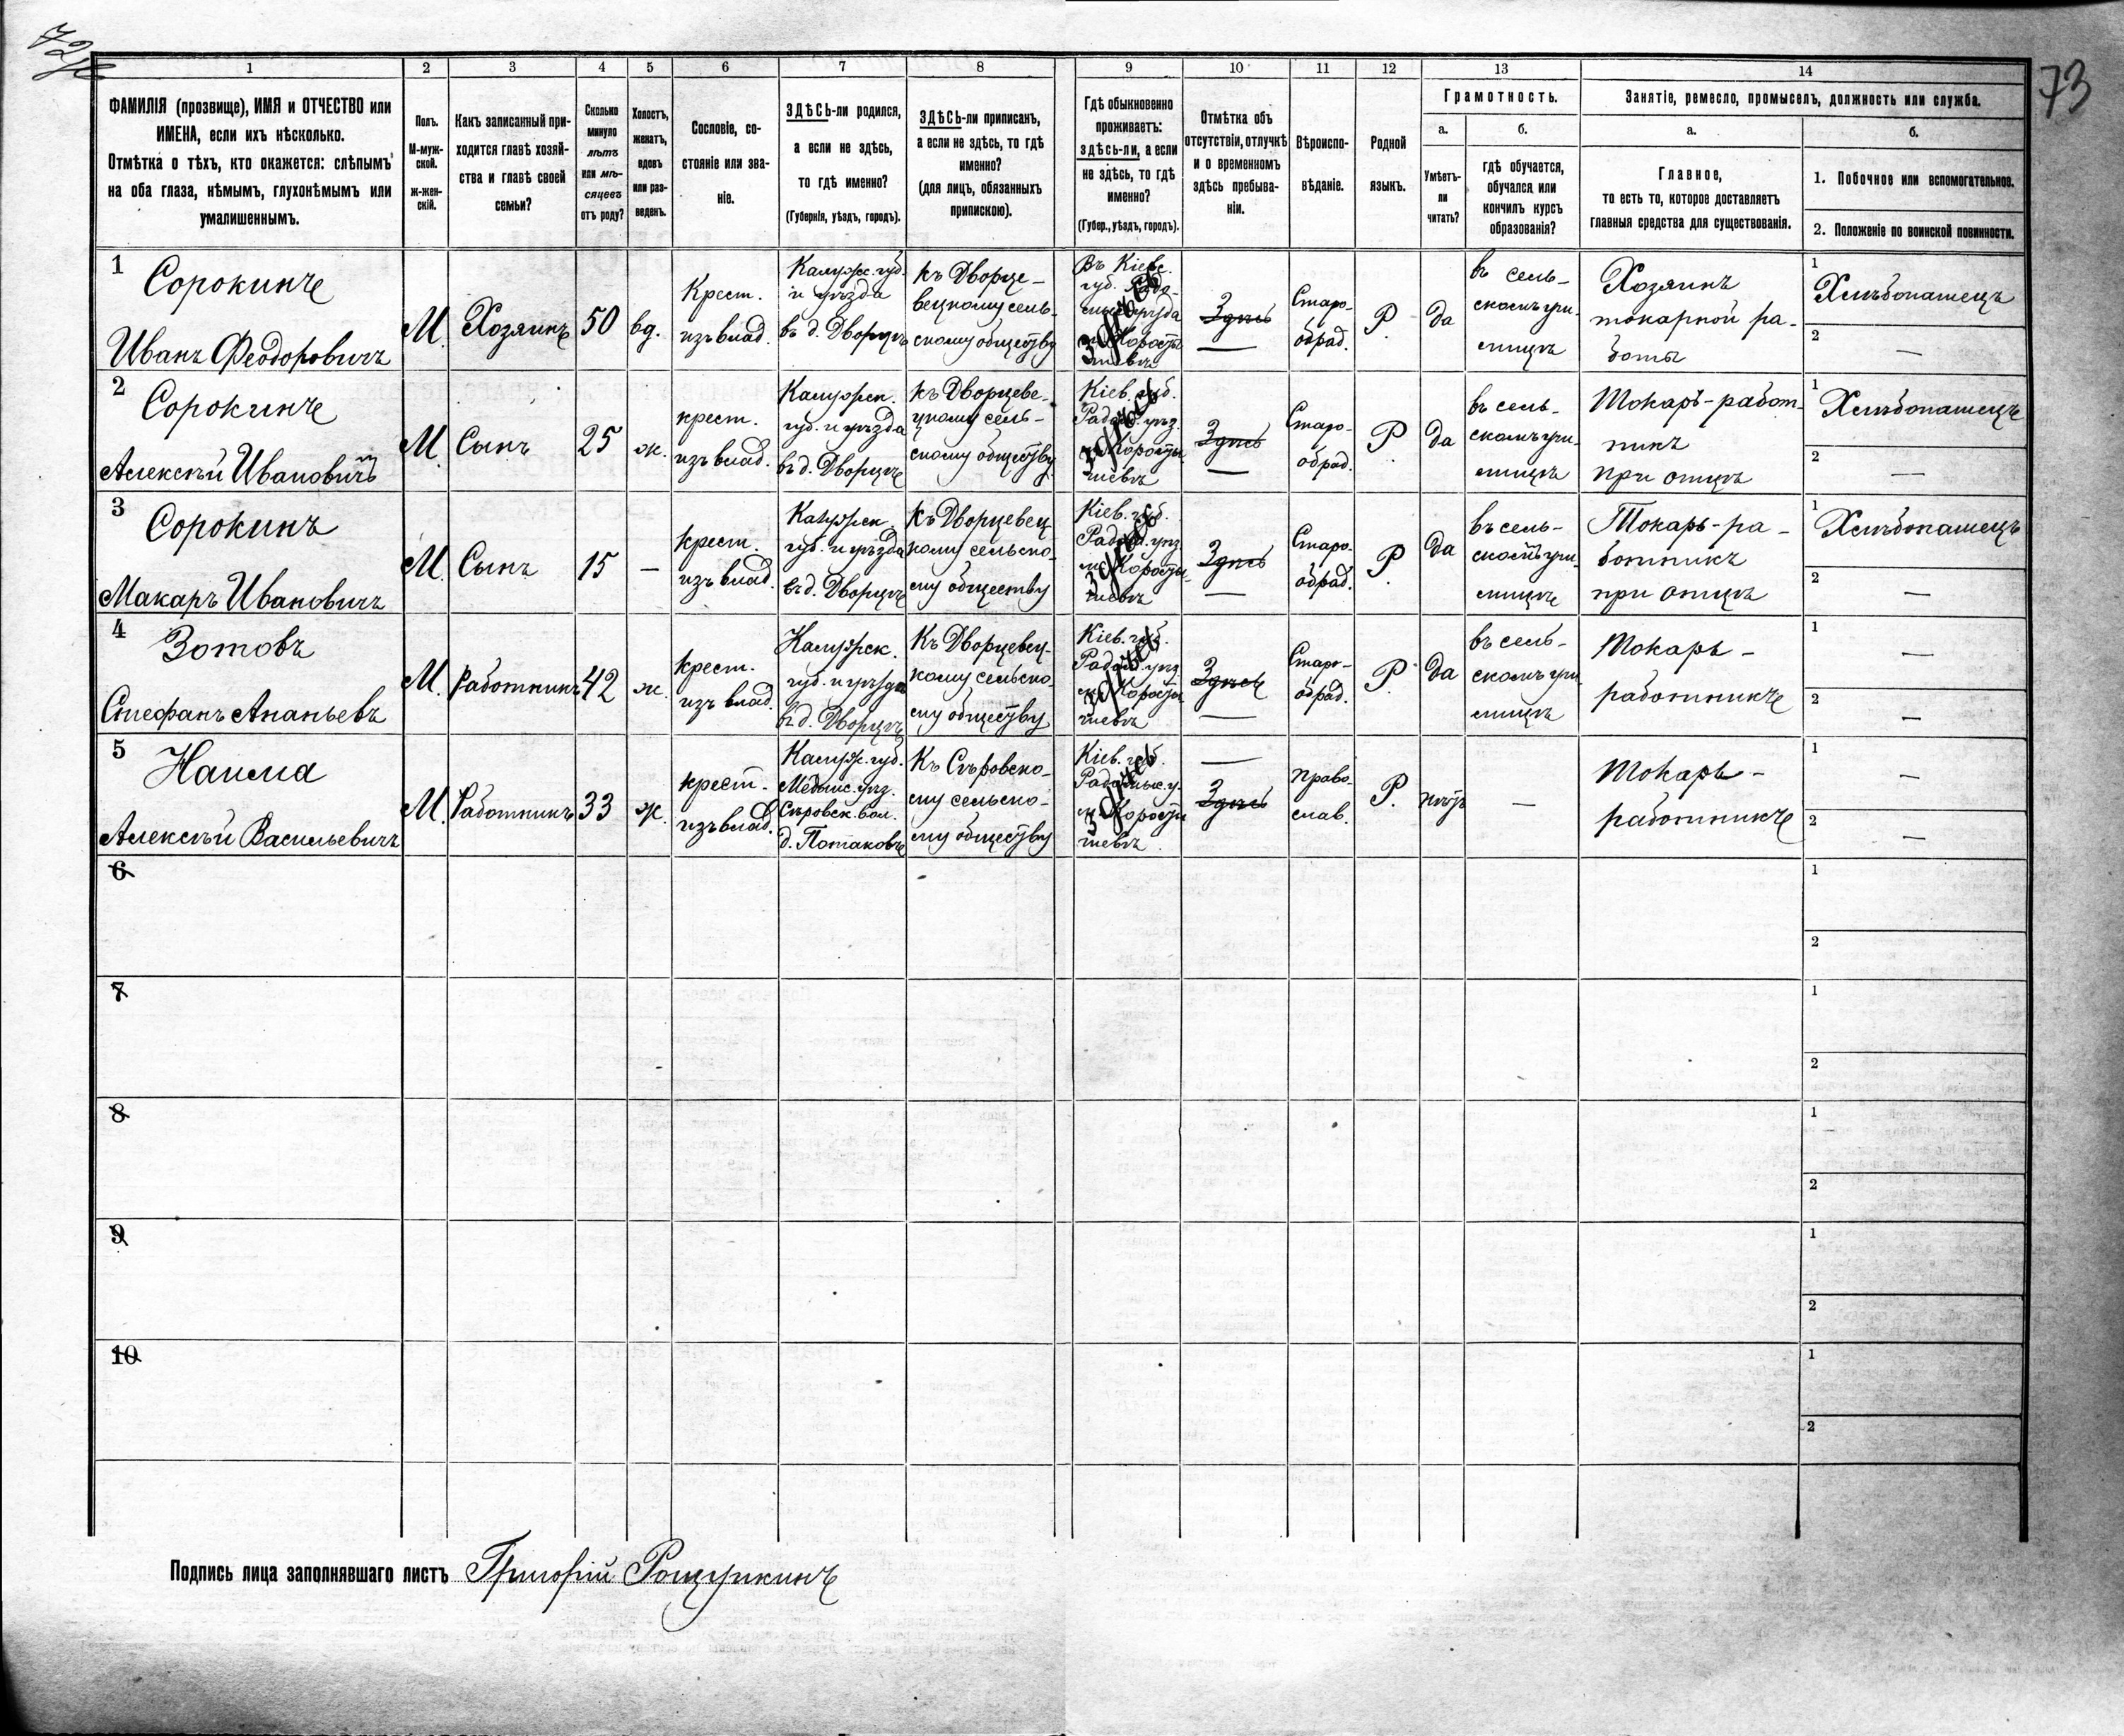 73
1
2
3
4
5
6
7
8
9
10
11
12
13
14
ФАМИЛІЯ (прозвище), ИМЯ и ОТЧЕСТВО или
ИМЕНА, если ихъ нѣсколько.
Отмѣтка о тѣхъ, кто окажется: слѣпымъ
на оба глаза, нѣмымъ, глухонѣмымъ или
умалишеннымъ.
Полъ.
М-муж-
ской.
ж-жен-
скій.
Какъ записанный при-
ходится главѣ хозяй-
ства и главѣ своей
семьи?
Сколько
минуло
лѣтъ
или мѣ-
сяцевъ
отъ роду?
Холостъ,
женатъ,
вдовъ
или раз-
веденъ.
Сословіе, со-
стояніе или зва-
ніе.
ЗДѢСЬ-ли родился,
а если не здѣсь,
то гдѣ именно?
(Губернія, уѣздъ, городъ).
ЗДѢСЬ-ли приписанъ,
а если не здѣсь, то гдѣ
именно?
(для лицъ, обязанныхъ
припискою).
Гдѣ обыкновенно
проживаетъ:
здѣсь-ли, а если
не здѣсь, то гдѣ
именно?
(Губер., уѣздъ, городъ).
Отмѣтка объ
отсутствіи, отлучкѣ
и о временномъ
здѣсь пребыва-
ніи.
Вѣроиспо-
вѣданіе.
Родной
языкъ.
Грамотность.
а.
Умѣетъ-
ли
читать?
б.
гдѣ обучается,
обучался или
кончилъ курсъ
образованія?
Занятіе, ремесло, промыселъ, должность или служба.
а.
Главное,
то есть то, которое доставляетъ
главныя средства для существованія.
б.
1. Побочное или вспомогательное.
2. Положеніе по воинской повинности.
1
Сорокинъ
Иванъ Феодоровичъ
М.
Хозяинъ
50
вд.
Крест.
изъ влад.
Калужс. губ.
и уѣзда
въ д. Дворцѣ
къ Дворце-
вецкому сель-
скому обществу
Въ Кіевс.
губ.
здѣсь
Здѣсь
—
Старо-
обряд.
Р
да
въ сель-
скомъ учи-
лищѣ
Хозяинъ
токарной ра-
боты
1
Хлѣбопашецъ
2
—
2
Сорокинъ
Алексѣй Ивановичъ
М
Сынъ
25
ж.
крест.
изъ влад.
Калужск.
губ. и уѣзда
въ д. Дворцѣ
къ Дворцеве-
цкому сель-
скому обществу
Кіев. губ.
Радом. уѣз.
м. Коросты-
шевѣ
здѣсь
Здѣсь
—
Старо-
обряд.
Р
да
въ сель-
скомъ учи-
лищѣ
Токарь-работ-
никъ
при отцѣ
1
Хлѣбопашецъ
2
—
3
Сорокинъ
Макаръ Ивановичъ
М.
Сынъ
15
—
крест.
изъ влад.
Калужск.
губ. и уѣзда
въ д. Дворцѣ
Къ Дворцевец-
кому сельско-
му обществу
Кіев. губ.
Радом. уѣз.
м. Коросты-
шевѣ
здѣсь
Здѣсь
—
Старо-
обряд.
Р
да
въ сель-
скомъ учи-
лищѣ
Токарь-ра-
ботникъ
при отцѣ
1
Хлѣбопашецъ
2
—
4
Зотовъ
Стефанъ Ананьевъ
М.
Работникъ
42
ж.
крест.
изъ влад.
Калужск.
губ. и уѣзда
въ д. Дворцѣ
Къ Дворцевец-
кому сельско-
му обществу
Кіев. губ.
Радом. уѣз.
м. Коросты-
шевѣ
здѣсь
Здѣсь
—
Старо-
обряд.
Р
да
въ сель-
скомъ учи-
лищѣ
Токарь -
работникъ
1
—
2
—
5
Алексѣй Васильевичъ
М.
Работникъ
33
ж.
крест.
изъ влад.
Калуж. губ.
Медынс. уѣз.
Сѣровск. вол.
Къ Сѣровско-
му сельско-
му обществу
Кіев. губ.
м. Корости-
шевѣ
здѣсь
—
Здѣсь
право-
слав.
Р.
нѣтъ
—
Токарь -
работникъ
1
—
2
—
6
1
2
7
1
2
8
1
2
9
1
2
10
1
2
Подпись лица заполнявшаго листъ Григорій Рощупкинъ